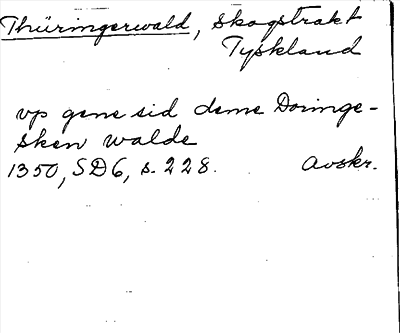 Thüringerwald, Skogstrakt
Tyskland
vp gene sid deme Doringe-
sken walde
1350, SD6, s. 228. Avskr.